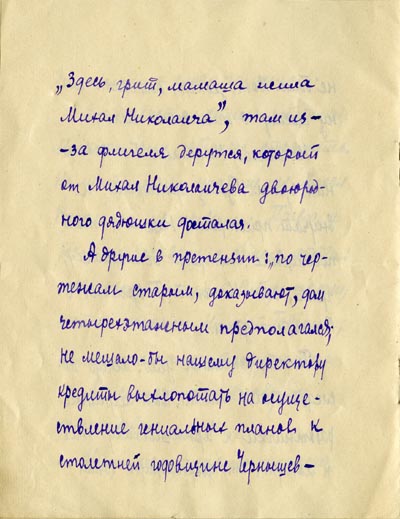 „Здесь, грит, мамаша жила
Михал Николаича”, там из-
-за флигеля дерутся, который
от Михал Николаичева двоюрод-
ного дядюшки достался.
А другие в претензии: „по чер-
тежам старым, доказывают, дом
четырехэтажным предполагался;
не мешало-бы нашему директору
кредиты выхлопотать на осуще-
ствление гениальных планов к
столетней годовщине Чернышев-